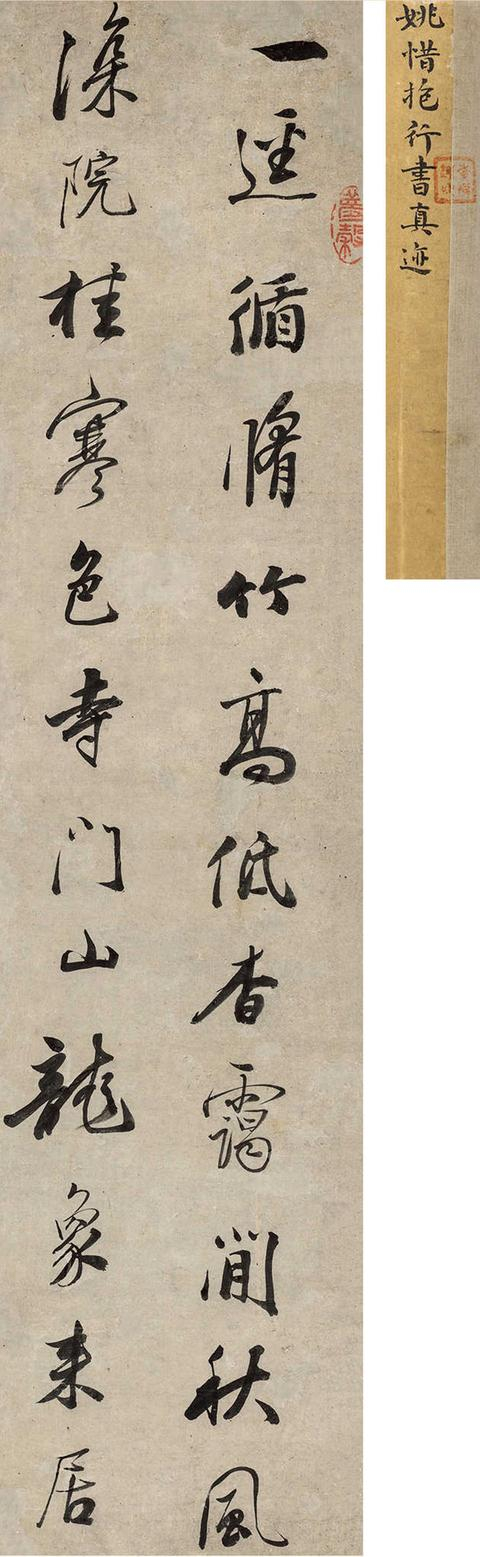 姚惜抱行書真迹
一逕循脩竹高低杳靄閒秋風
深院桂寒色寺門山龍象来居